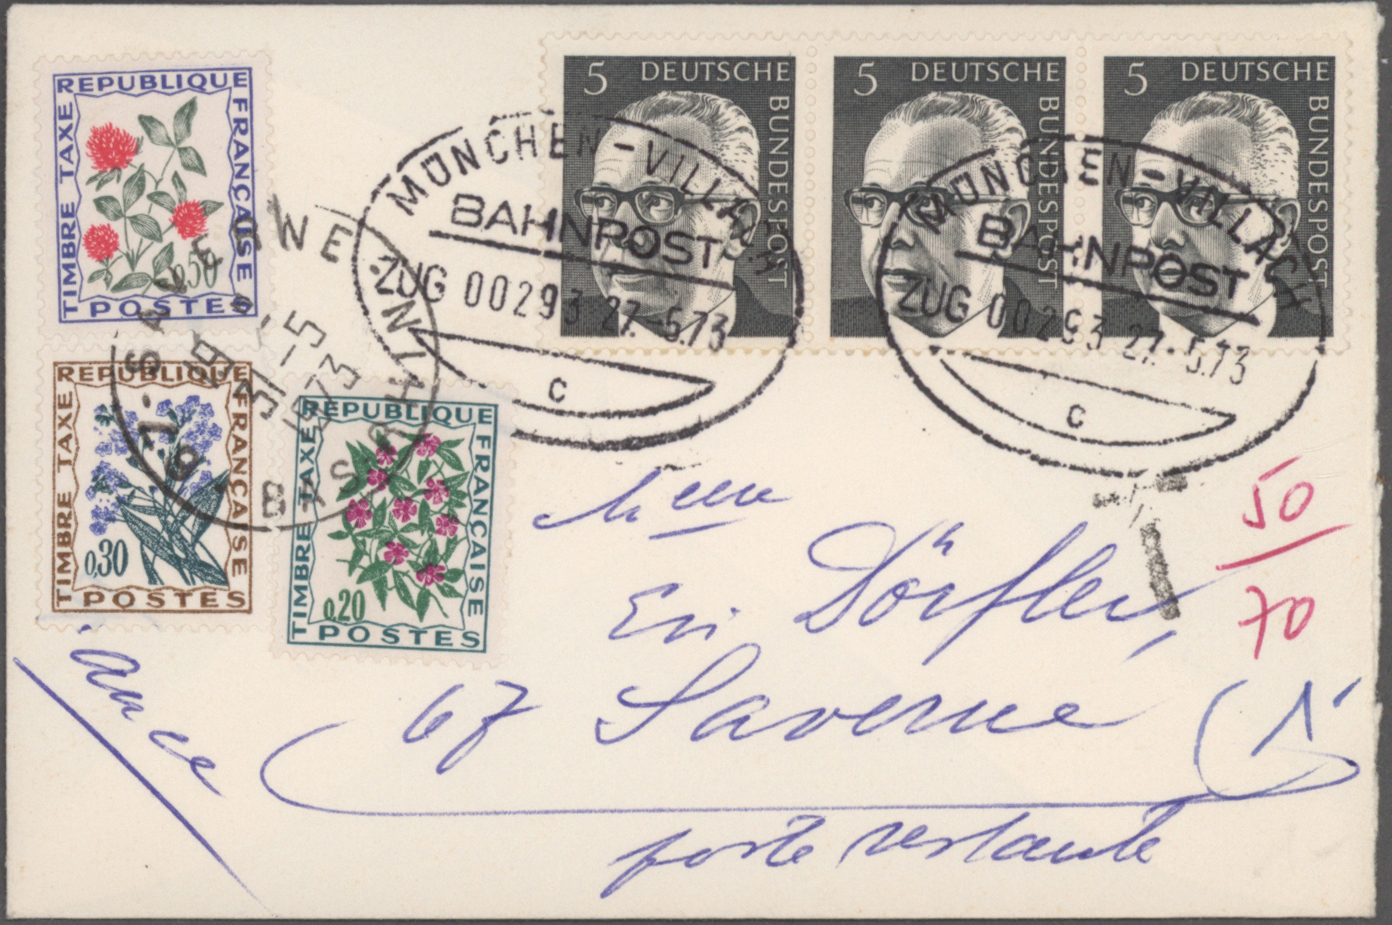 REPUBLIQUE FRANÇAISE
TIMBRE TAXE
0,50
POSTES
5 DEUTSCHE BUNDESPOST
5 DEUTSCHE BUNDESPOST
5 DEUTSCHE BUNDESPOST
MÜNCHEN-VILLACH
BAHNPOST
ZUG 00293 27.-5.73
c
MÜNCHEN-VILLACH
BAHNPOST
ZUG 00293 27.-5.73
c
67-SAVERNE
BAS-RHIN
REPUBLIQUE FRANÇAISE
TIMBRE TAXE
0,30
POSTES
REPUBLIQUE FRANÇAISE
TIMBRE TAXE
0,20
POSTES
T
50
70
Dörfler,
67 Saverne
poste restante